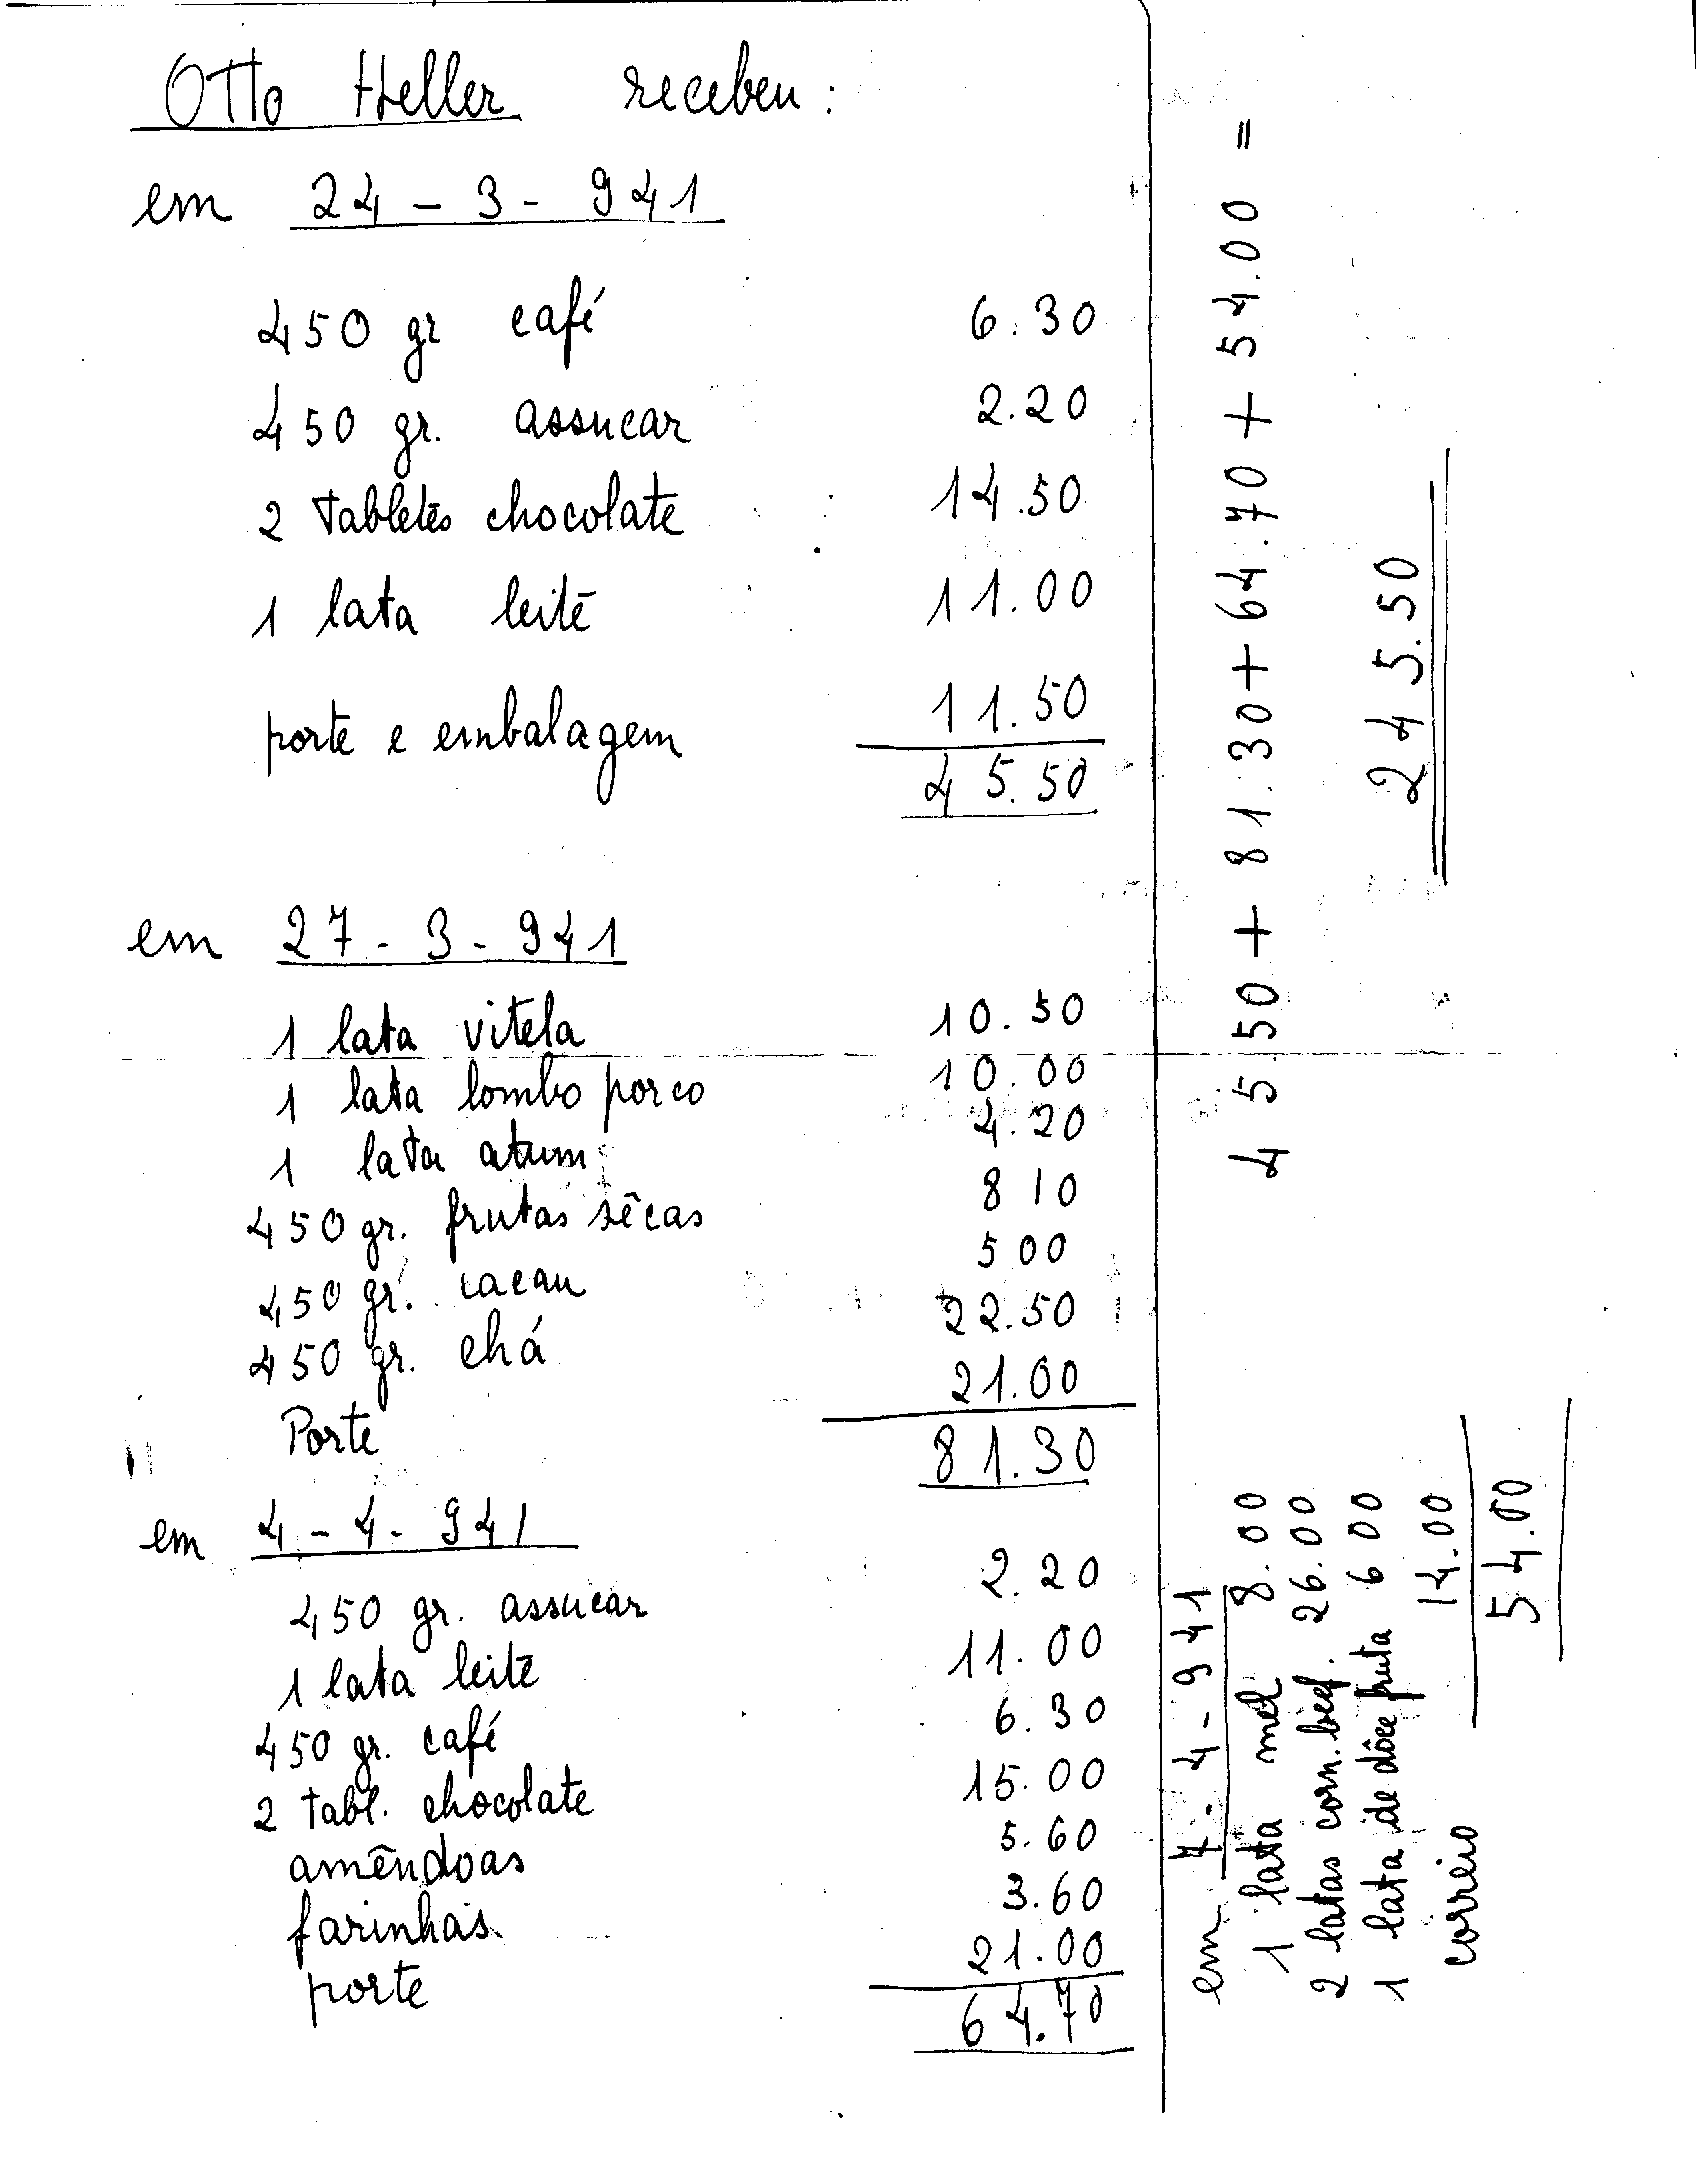 Otto Heller recebeu:
em 24-3-941
450 gr café 6.30
450 gr. assucar 2.20
2 tabletes chocolate 14.50
1 lata leite 11.00
porte e embalagem 11.50
45.50
em 27-3-941
1 lata vitela 10.50
1 lata lombo porco 10.00
1 lata atum 4.20
450 gr. frutas sêcas 8 10
450 gr. cacau 5 00
450 gr. chá 22.50
Porte 21.00
81.30
em 4-4-941
450 gr. assucar 2.20
1 lata leite 11.00
450 gr. café 6.30
2 tabl. chocolate 15.00
amêndoas 5.60
farinhas 3.60
porte 21.00
64.70
em 7-4-941
1 lata mel 8.00
2 latas corn. beef. 26.00
1 lata de dôce fruta 6 00
correio 14.00
54.00
45.50 + 81.30 + 64.70 + 54.00 =
245.50